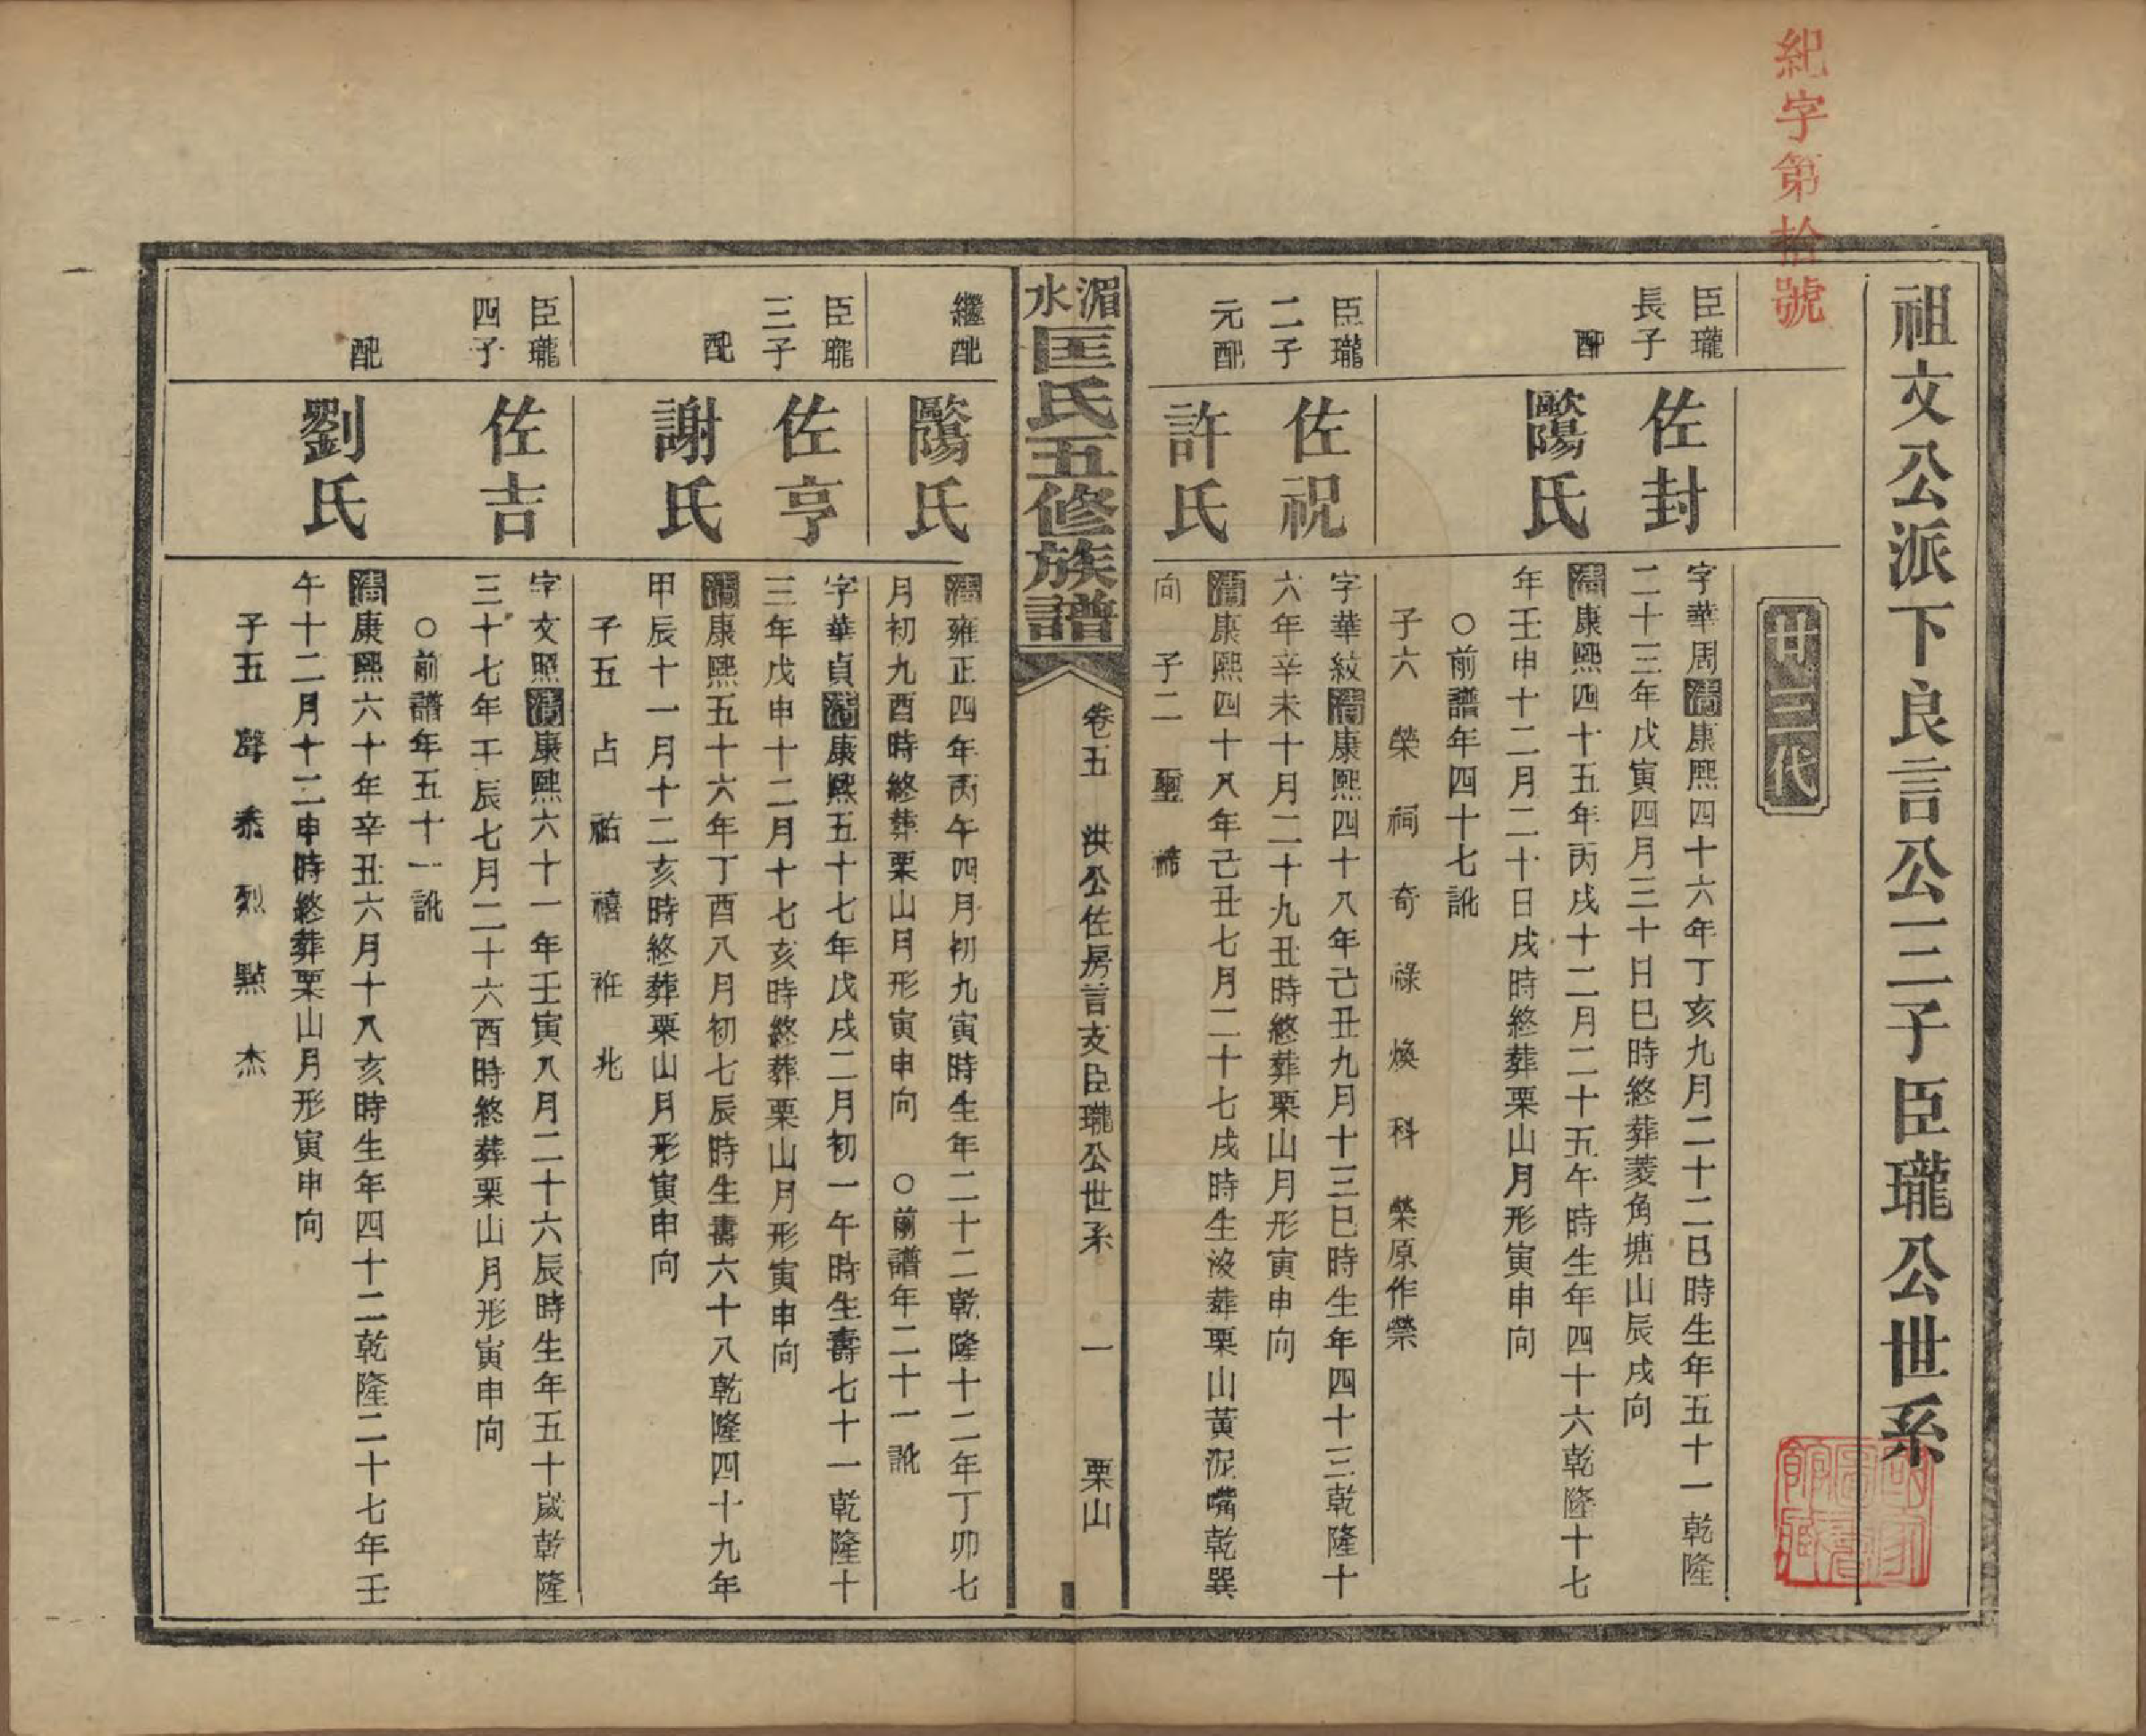 紀字第拾號
祖文公派下良言公三子臣瓏公世系
廿三代
臣瓏
長子
佐封
字華周清康熙四十六年丁亥九月二十二巳時生年五十一乾隆
二十三年戊寅四月三十日巳時終葬菱角塘山辰戌向
配
歐陽氏
清康熙四十五年丙戌十二月二十五午時生年四十六乾隆十七
年壬申十二月二十日戌時終葬栗山月形寅申向
○前譜年四十七訛
子六 榮 祠 奇 祿 煥 科 榮原作縈
臣瓏
二子
佐祝
字華紋清康熙四十八年己丑九月十三巳時生年四十三乾隆十
六年辛未十月二十九丑時終葬栗山月形寅申向
元配
許氏
清康熙四十八年己丑七月二十七戌時生沒葬栗山黃泥嘴乾巽
向 子二 璽 禘
湄水匡氏五修族譜
卷五 洪公佐房言支臣瓏公世系 一 栗山
繼配
歐陽氏
清雍正四年丙午四月初九寅時生年二十二乾隆十二年丁卯七
月初九酉時終葬栗山月形寅申向 ○前譜年二十一訛
臣瓏
三子
佐亨
字華貞清康熙五十七年戊戌二月初一午時生壽七十一乾隆十
三年戊申十二月十七亥時終葬栗山月形寅申向
配
謝氏
清康熙五十六年丁酉八月初七辰時生壽六十八乾隆四十九年
甲辰十一月十二亥時終葬栗山月形寅申向
子五 占 祐 禧 兆
臣瓏
四子
佐吉
字文照清康熙六十一年壬寅八月二十六辰時生年五十歲乾隆
三十七年壬辰七月二十六酉時終葬栗山月形寅申向
○前譜年五十一訛
配
劉氏
清康熙六十年辛丑六月十八亥時生年四十二乾隆二十七年壬
午十二月十二申時終葬栗山月形寅申向
子五 聲 烈 點 杰